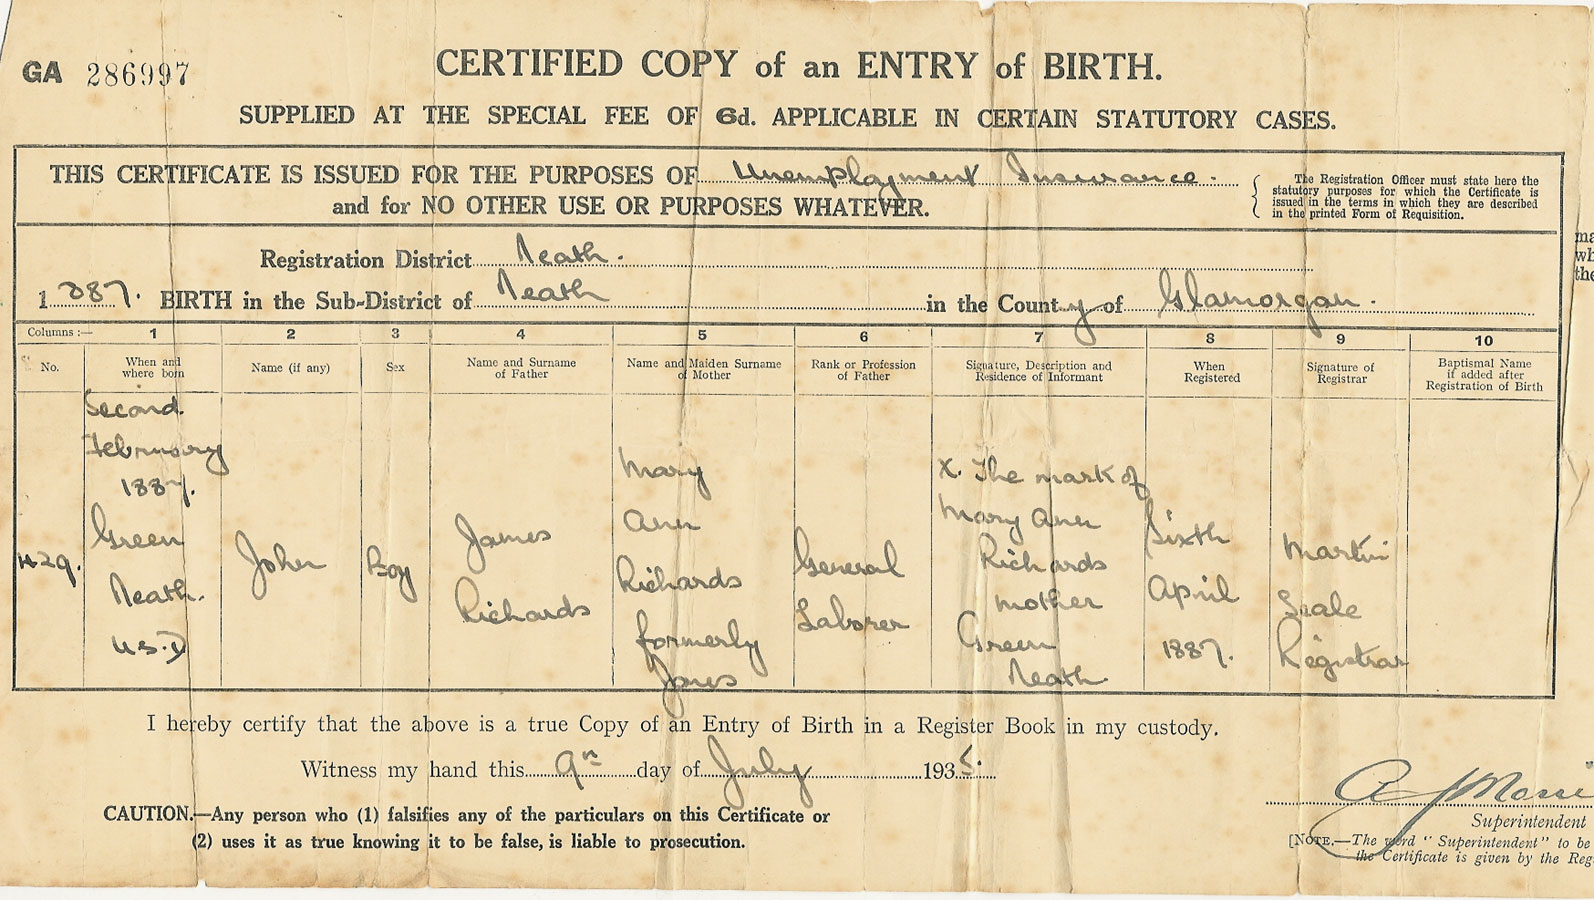 GA 286997
CERTIFIED COPY of an ENTRY of BIRTH.
SUPPLIED AT THE SPECIAL FEE OF 6d. APPLICABLE IN CERTAIN STATUTORY CASES.
THIS CERTIFICATE IS ISSUED FOR THE PURPOSES OF Unemployment Insurance.
and for NO OTHER USE OR PURPOSES WHATEVER.
The Registration Officer must state here the
statutory purposes for which the Certificate is
issued in the terms in which they are described
in the printed Form of Requisition.
Registration District Neath.
1887. BIRTH in the Sub-District of Neath in the County of Glamorgan.
Columns :— 1 2 3 4 5 6 7 8 9 10
No.
When and
where born
Name (if any)
Sex
Name and Surname
of Father
Name and Maiden Surname
of Mother
Rank or Profession
of Father
Signature, Description and
Residence of Informant
When
Registered
Signature of
Registrar
Baptismal Name
if added after
Registration of Birth
429.
Second
February
1887.
Green
Neath.
U.S.D
John
Boy
James
Richards
Mary
Ann
Richards
formerly
Jones
General
Laborer
X. The mark of
Mary Ann
Richards
mother
Green
Neath
Sixth
April
1887.
Martin
Seale
Registrar
I hereby certify that the above is a true Copy of an Entry of Birth in a Register Book in my custody.
Witness my hand this 9th day of July 1935.
CAUTION.—Any person who (1) falsifies any of the particulars on this Certificate or
(2) uses it as true knowing it to be false, is liable to prosecution.
Superintendent
[NOTE.—The word "Superintendent" to be
the Certificate is given by the Reg
ma
wh
the